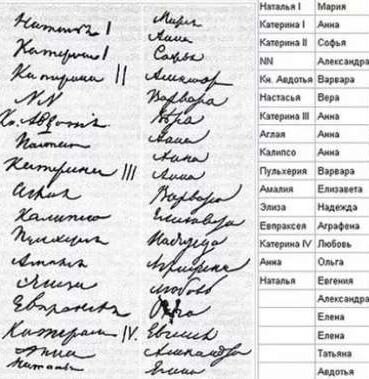 Наталья I
Катерина I
Катерина II
NN
Кн. Авдотья
Настасья
Катерина III
Аглая
Калипсо
Пульхерия
Амалия
Элиза
Евпраксея
Катерина IV.
Анна
Наталья
Мария
Анна
Софья
Александра
Варвара
Вера
Анна
Анна
Анна
Варвара
Елизавета
Надежда
Аграфена
Любовь
Ольга
Евгения
Александра
Елена
Наталья I Мария
Катерина I Анна
Катерина II Софья
NN Александра
Кн. Авдотья Варвара
Настасья Вера
Катерина III Анна
Аглая Анна
Калипсо Анна
Пульхерия Варвара
Амалия Елизавета
Элиза Надежда
Евпраксея Аграфена
Катерина IV Любовь
Анна Ольга
Наталья Евгения
Александра
Елена
Елена
Татьяна
Авдотья